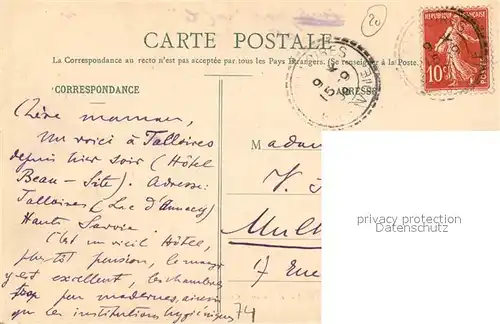 20
CARTE POSTALE
La Correspondance au recto n'est pas acceptée par tous les Pays Étrangers. (Se renseigner à la Poste.)
RÉPUBLIQUE FRANÇAISE
10c
CORRESPONDANCE
ADRESSE
Chère maman,
Me voici à Talloires
depuis hier soir (Hôtel
Beau-Site). Adresse:
Talloires (Lac d'Annecy)
Haute Savoie.
C'est un vieil Hôtel,
plutôt pension, le
y est excellent, les chambres
peu modernes, ainsi
que les institutions hygiéniques
74
Mada
V.
Mulh
17 Rue
privacy protection
Datenschutz